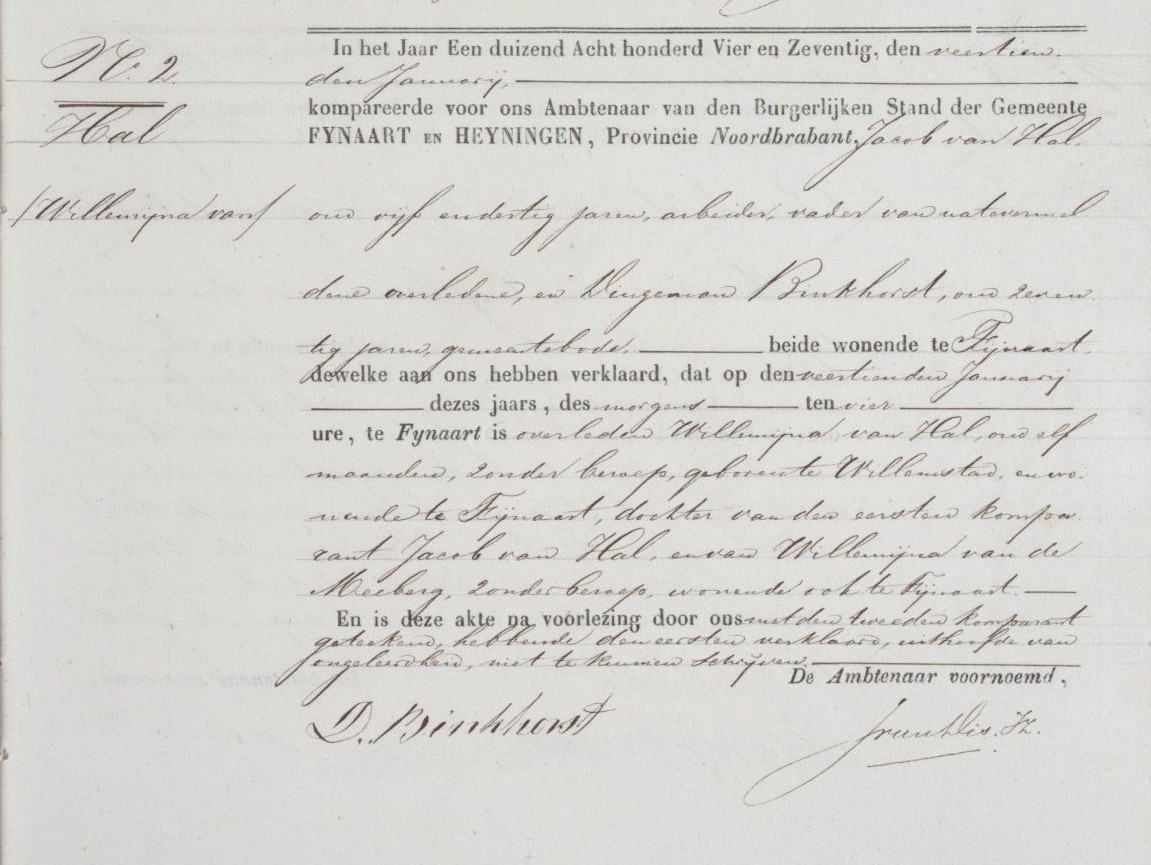 N.o 2.
Hal
(Willemijna van)
In het Jaar Een duizend Acht honderd Vier en Zeventig, den veertien
den Januarij,
kompareerde voor ons Ambtenaar van den Burgerlijken Stand der Gemeente
FYNAART EN HEYNINGEN, Provincie Noordbrabant, Jacob van Hal.
oud vijf en dertig jaren, arbeider, vader van natevermel
dene overledene, en Dingeman Binkhorst, oud zeven
tig jaren, gemeentebode, beide wonende te Fijnaart,
dewelke aan ons hebben verklaard, dat op den veertienden Januarij
dezes jaars, des morgens ten vier
ure, te Fynaart is overleden Willemijna van Hal, oud elf
maanden, zonder beroep, geboren te Willemstad, en wo
nende te Fijnaart, dochter van den eersten kompa
rant Jacob van Hal, en van Willemijna van de
Meeberg, zonder beroep, wonende ook te Fijnaart.
En is deze akte na voorlezing door ons met den tweeden komparant
geteekend, hebbende den eersten verklaard, uit hoofde van
ongeleerdheid, niet te kunnen schrijven.
De Ambtenaar voornoemd,
D. Binkhorst